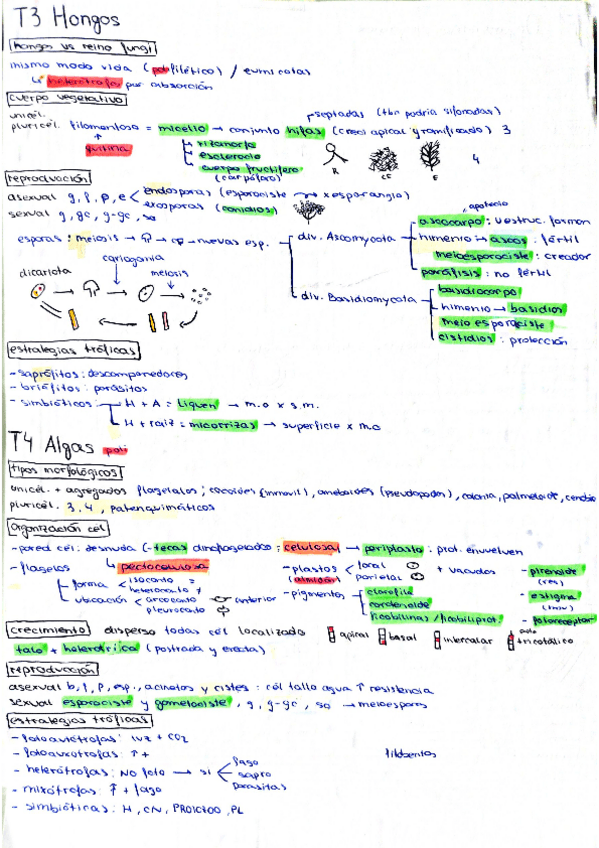 T3 Hongos
hongos vs reino fungi
mismo modo vida (polifilético) / eumicotas
↳ heterótrofa por absorción
cuerpo vegetativo
unicél. septadas (tbn podría sifonadas)
pluricél. filamentosa = micelio → conjunto hifas (creci apical y ramificado) 3
quitina
rizomorfo
esclerocio
cuerpo fructífero
(carpóforo)
R CF E 4
reproducción
asexual g, f, p, e < endosporas (esporociste → x esporangio)
exosporas (conidios)
sexual g, gc, g-gc, so
apotecio
esporas: meiosis → → → nuevas esp.
div. Ascomycota
ascocarpo: estruc. forman
himenio → ascos: fértil
meioesporociste: creador
paráfisis: no fértil
cariogamia
dicariota meiosis
div. Basidiomycota
basidiocarpo
himenio → basidios
meioesporociste
cistidios: protección
estrategias tróficas
- saprófitos: descomponedores
- briófitos: parásitos
- simbióticos: H + A = liquen → m.o x s.m.
H + raíz = micorrizas → superficie x m.o
T4 Algas poli
tipos morfológicos
unicél. + agregados flagelalos; cocoides (inmovil), ameboides (pseudopodos), colonia, palmeloide, cenobio
pluricél. 3, 4, parenquimáticos
Organización cél
- pared cél: desnuda (- tecas dinoflagelados: celulosa) → periplasto: prot. envuelven
↳ pectocelulosa
- flagelos
forma < isoconto =
heteroconto ≠
ubicación < acroconto anterior
pleuroconto
- plastos < foral
parietal
(almidón)
+ vacuolas
- pigmentos
clorofila
carotenoide
ficobilinas / ficobiliprot.
- pirenoide
(res)
- estigma
(luz)
- fotoreceptor
crecimiento disperso todas cél localizado apical basal intercalar tricotálico
talo + heterótrica (postrada y erecta)
reproducción
asexual b, f, p, esp., acinetos y cistes: cél tallo agua ↑ resistencia
sexual esporociste y gametociste, g, g-gc, so → meioesporas
estrategias tróficas
- fotoautótrofas: luz + CO2
- fotoauxotrofas: ↑ +
- heterótrofas: NO foto → si < fago
sapro
parasitas
- mixótrofas: ↑ + fago
- simbióticas: H, CN, PROTOZOO, PL
filobentos